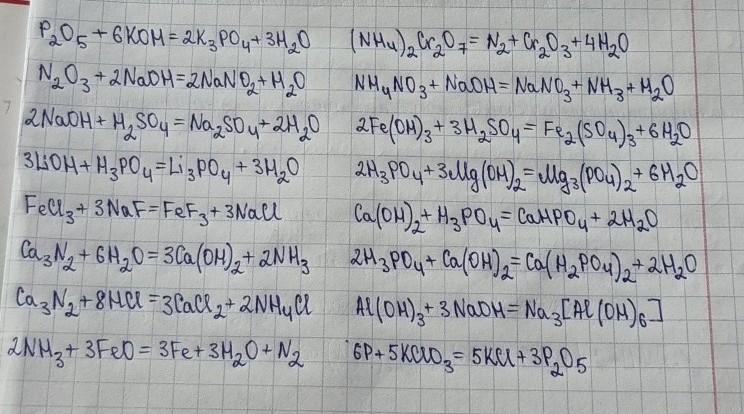 P₂O₅ + 6KOH = 2K₃PO₄ + 3H₂O
N₂O₃ + 2NaOH = 2NaNO₂ + H₂O
2NaOH + H₂SO₄ = Na₂SO₄ + 2H₂O
3LiOH + H₃PO₄ = Li₃PO₄ + 3H₂O
FeCl₃ + 3NaF = FeF₃ + 3NaCl
Ca₃N₂ + 6H₂O = 3Ca(OH)₂ + 2NH₃
Ca₃N₂ + 8HCl = 3CaCl₂ + 2NH₄Cl
2NH₃ + 3FeO = 3Fe + 3H₂O + N₂
(NH₄)₂Cr₂O₇ = N₂ + Cr₂O₃ + 4H₂O
NH₄NO₃ + NaOH = NaNO₃ + NH₃ + H₂O
2Fe(OH)₃ + 3H₂SO₄ = Fe₂(SO₄)₃ + 6H₂O
2H₃PO₄ + 3Mg(OH)₂ = Mg₃(PO₄)₂ + 6H₂O
Ca(OH)₂ + H₃PO₄ = CaHPO₄ + 2H₂O
2H₃PO₄ + Ca(OH)₂ = Ca(H₂PO₄)₂ + 2H₂O
Al(OH)₃ + 3NaOH = Na₃[Al(OH)₆]
6P + 5KClO₃ = 5KCl + 3P₂O₅